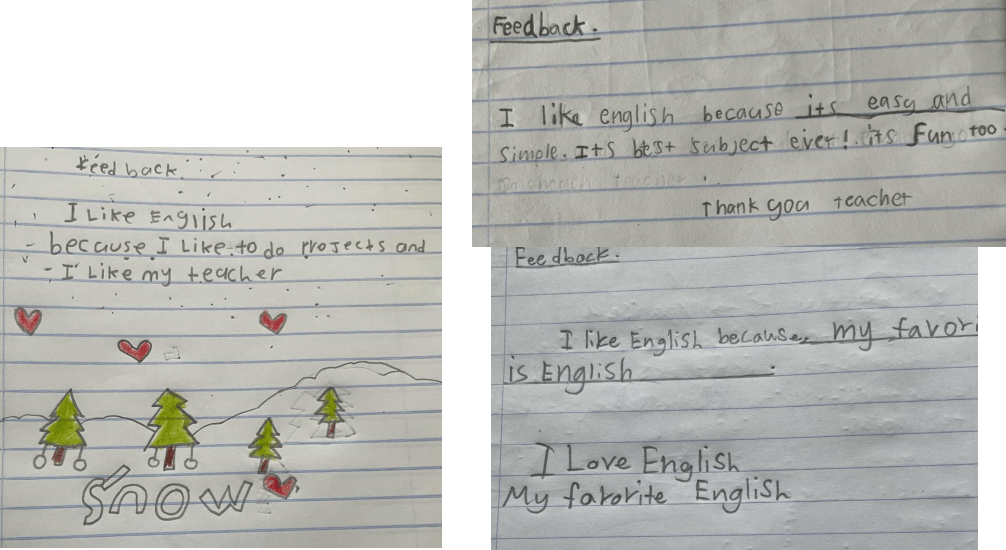 Feedback.
I like English
- because I Like to do projects and
- I Like my teacher
Snow
Feedback.
I like english because its easy and
simple. Its best subject ever! its Fun too
Thank you teacher
Feedback.
I like English because, my favor
is English .
I Love English
My favorite English